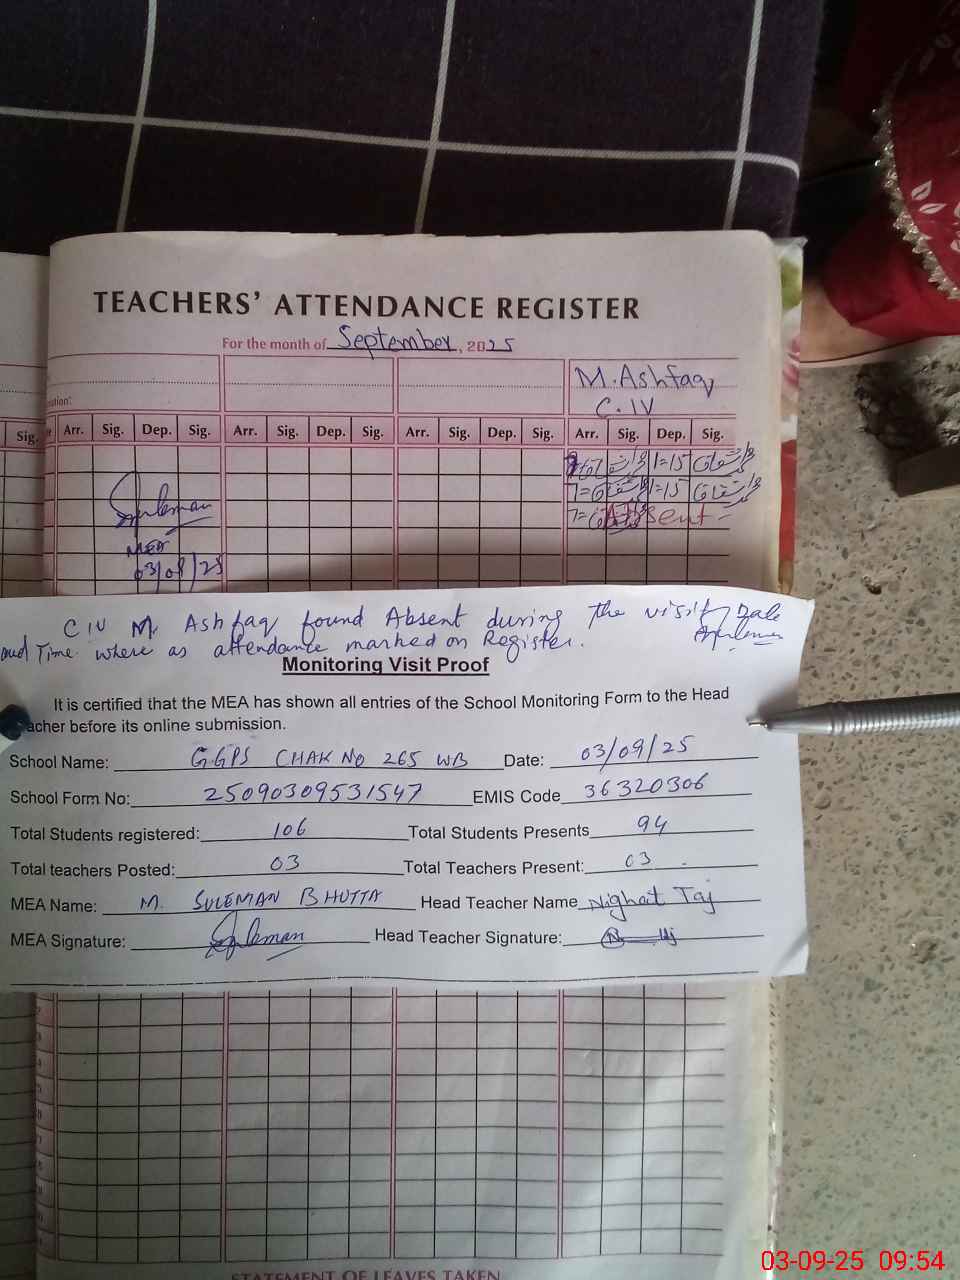 TEACHERS' ATTENDANCE REGISTER
For the month of September, 2025
M. Ashfaq
C.IV
Sig. Arr. Sig. Dep. Sig. Arr. Sig. Dep. Sig. Arr. Sig. Dep. Sig. Arr. Sig. Dep. Sig.
1=15
7= 1=15
7= Absent
Suleman
MEA
03/09/25
CIV M. Ashfaq found Absent during the visit Date
and Time where as attendance marked on Register.
Monitoring Visit Proof
It is certified that the MEA has shown all entries of the School Monitoring Form to the Head
acher before its online submission.
School Name: G.GPS CHAK NO 265 WB Date: 03/09/25
School Form No: 25090309531547 EMIS Code 36320306
Total Students registered: 106 Total Students Presents 94
Total teachers Posted: 03 Total Teachers Present: 03
MEA Name: M. SULEMAN BHUTTA Head Teacher Name Nighat Taj
MEA Signature: Suleman Head Teacher Signature:
STATEMENT OF LEAVES TAKEN
03-09-25 09:54